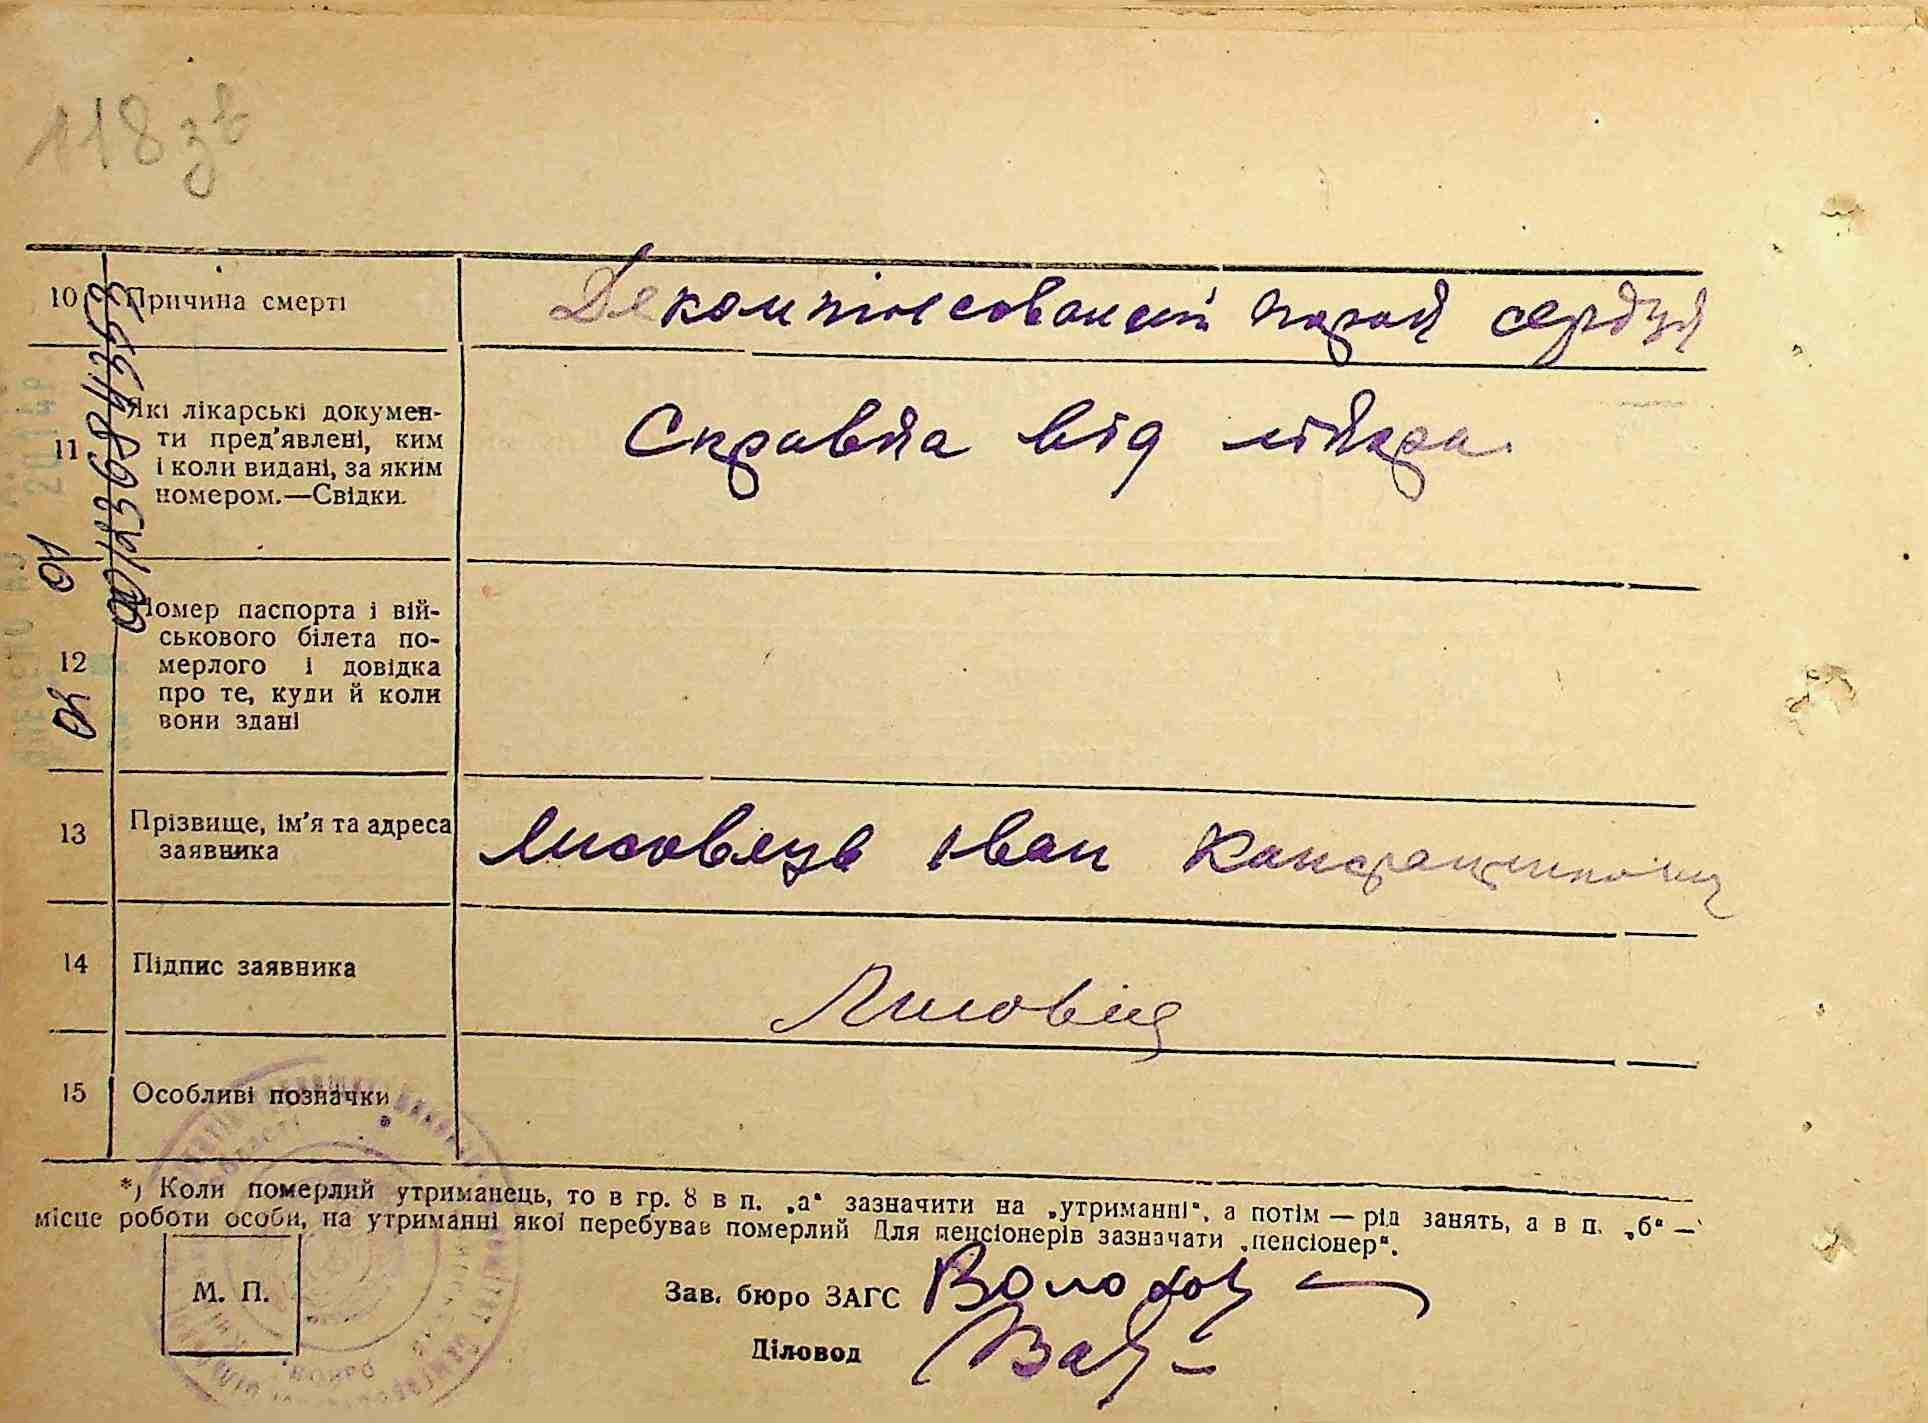 118 зв
10 Причина смерті Декомпінсований порок сердця
11 Які лікарські докумен-
ти пред'явлені, ким
і коли видані, за яким
номером.—Свідки.
Справка від лікаря.
12 Номер паспорта і вій-
ськового білета по-
мерлого і довідка
про те, куди й коли
вони здані
13 Прізвище, ім'я та адреса
заявника
Лисовець Іван
14 Підпис заявника Лисовец
15 Особливі позначки
*) Коли померлий утриманець, то в гр. 8 в п. „а“ зазначити на „утриманні“, а потім — рід занять, а в п. „б“ —
місце роботи особи, на утриманні якої перебував померлий Для пенсіонерів зазначати „пенсіонер“.
М. П.
Зав. бюро ЗАГС
Діловод